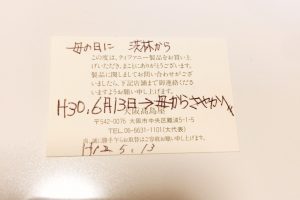 母の日に 茨林から
この度は、ティファニー製品をお買い上
げいただき、まことにありがとうございます。
製品に関しましてお問い合わせがござ
いましたら、下記店舗まで御連絡くださ
いますようお願い申し上げます。
H30,6月13日→母からさやかへ
大阪髙島屋
〒542-0076 大阪市中央区難波5-1-5
TEL.06-6631-1101(大代表)
お取替はご容赦お願い申し上げます。
H12 5, 13